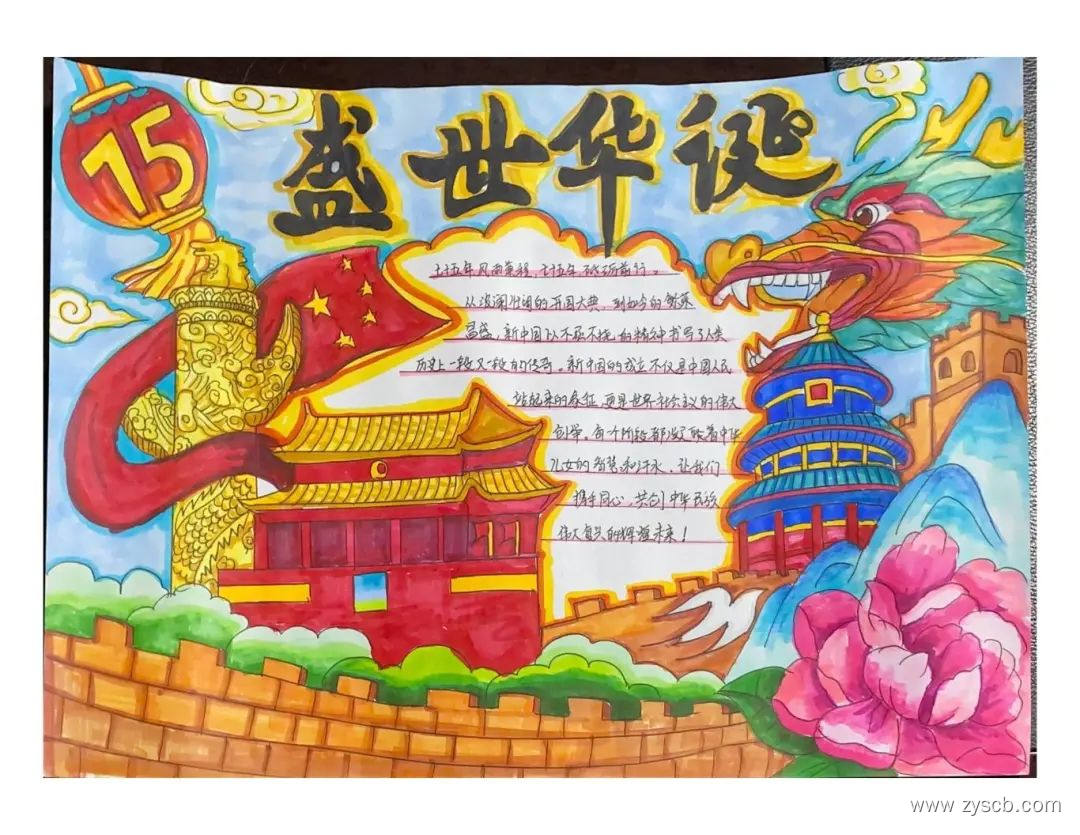 75
盛世华诞
七十五年风雨兼程，七十五年砥砺前行。
从波澜壮阔的开国大典，到如今的繁荣
昌盛，新中国以不屈不挠的精神书写了人类
历史上一段又一段的传奇。新中国的成立不仅是中国人民
站起来的象征，更是世界社会主义的伟大
创举，每个阶段都凝聚着中华
儿女的智慧和汗水，让我们
携手同心，共创中华民族
伟大复兴的辉煌未来！
www.zyscb.com